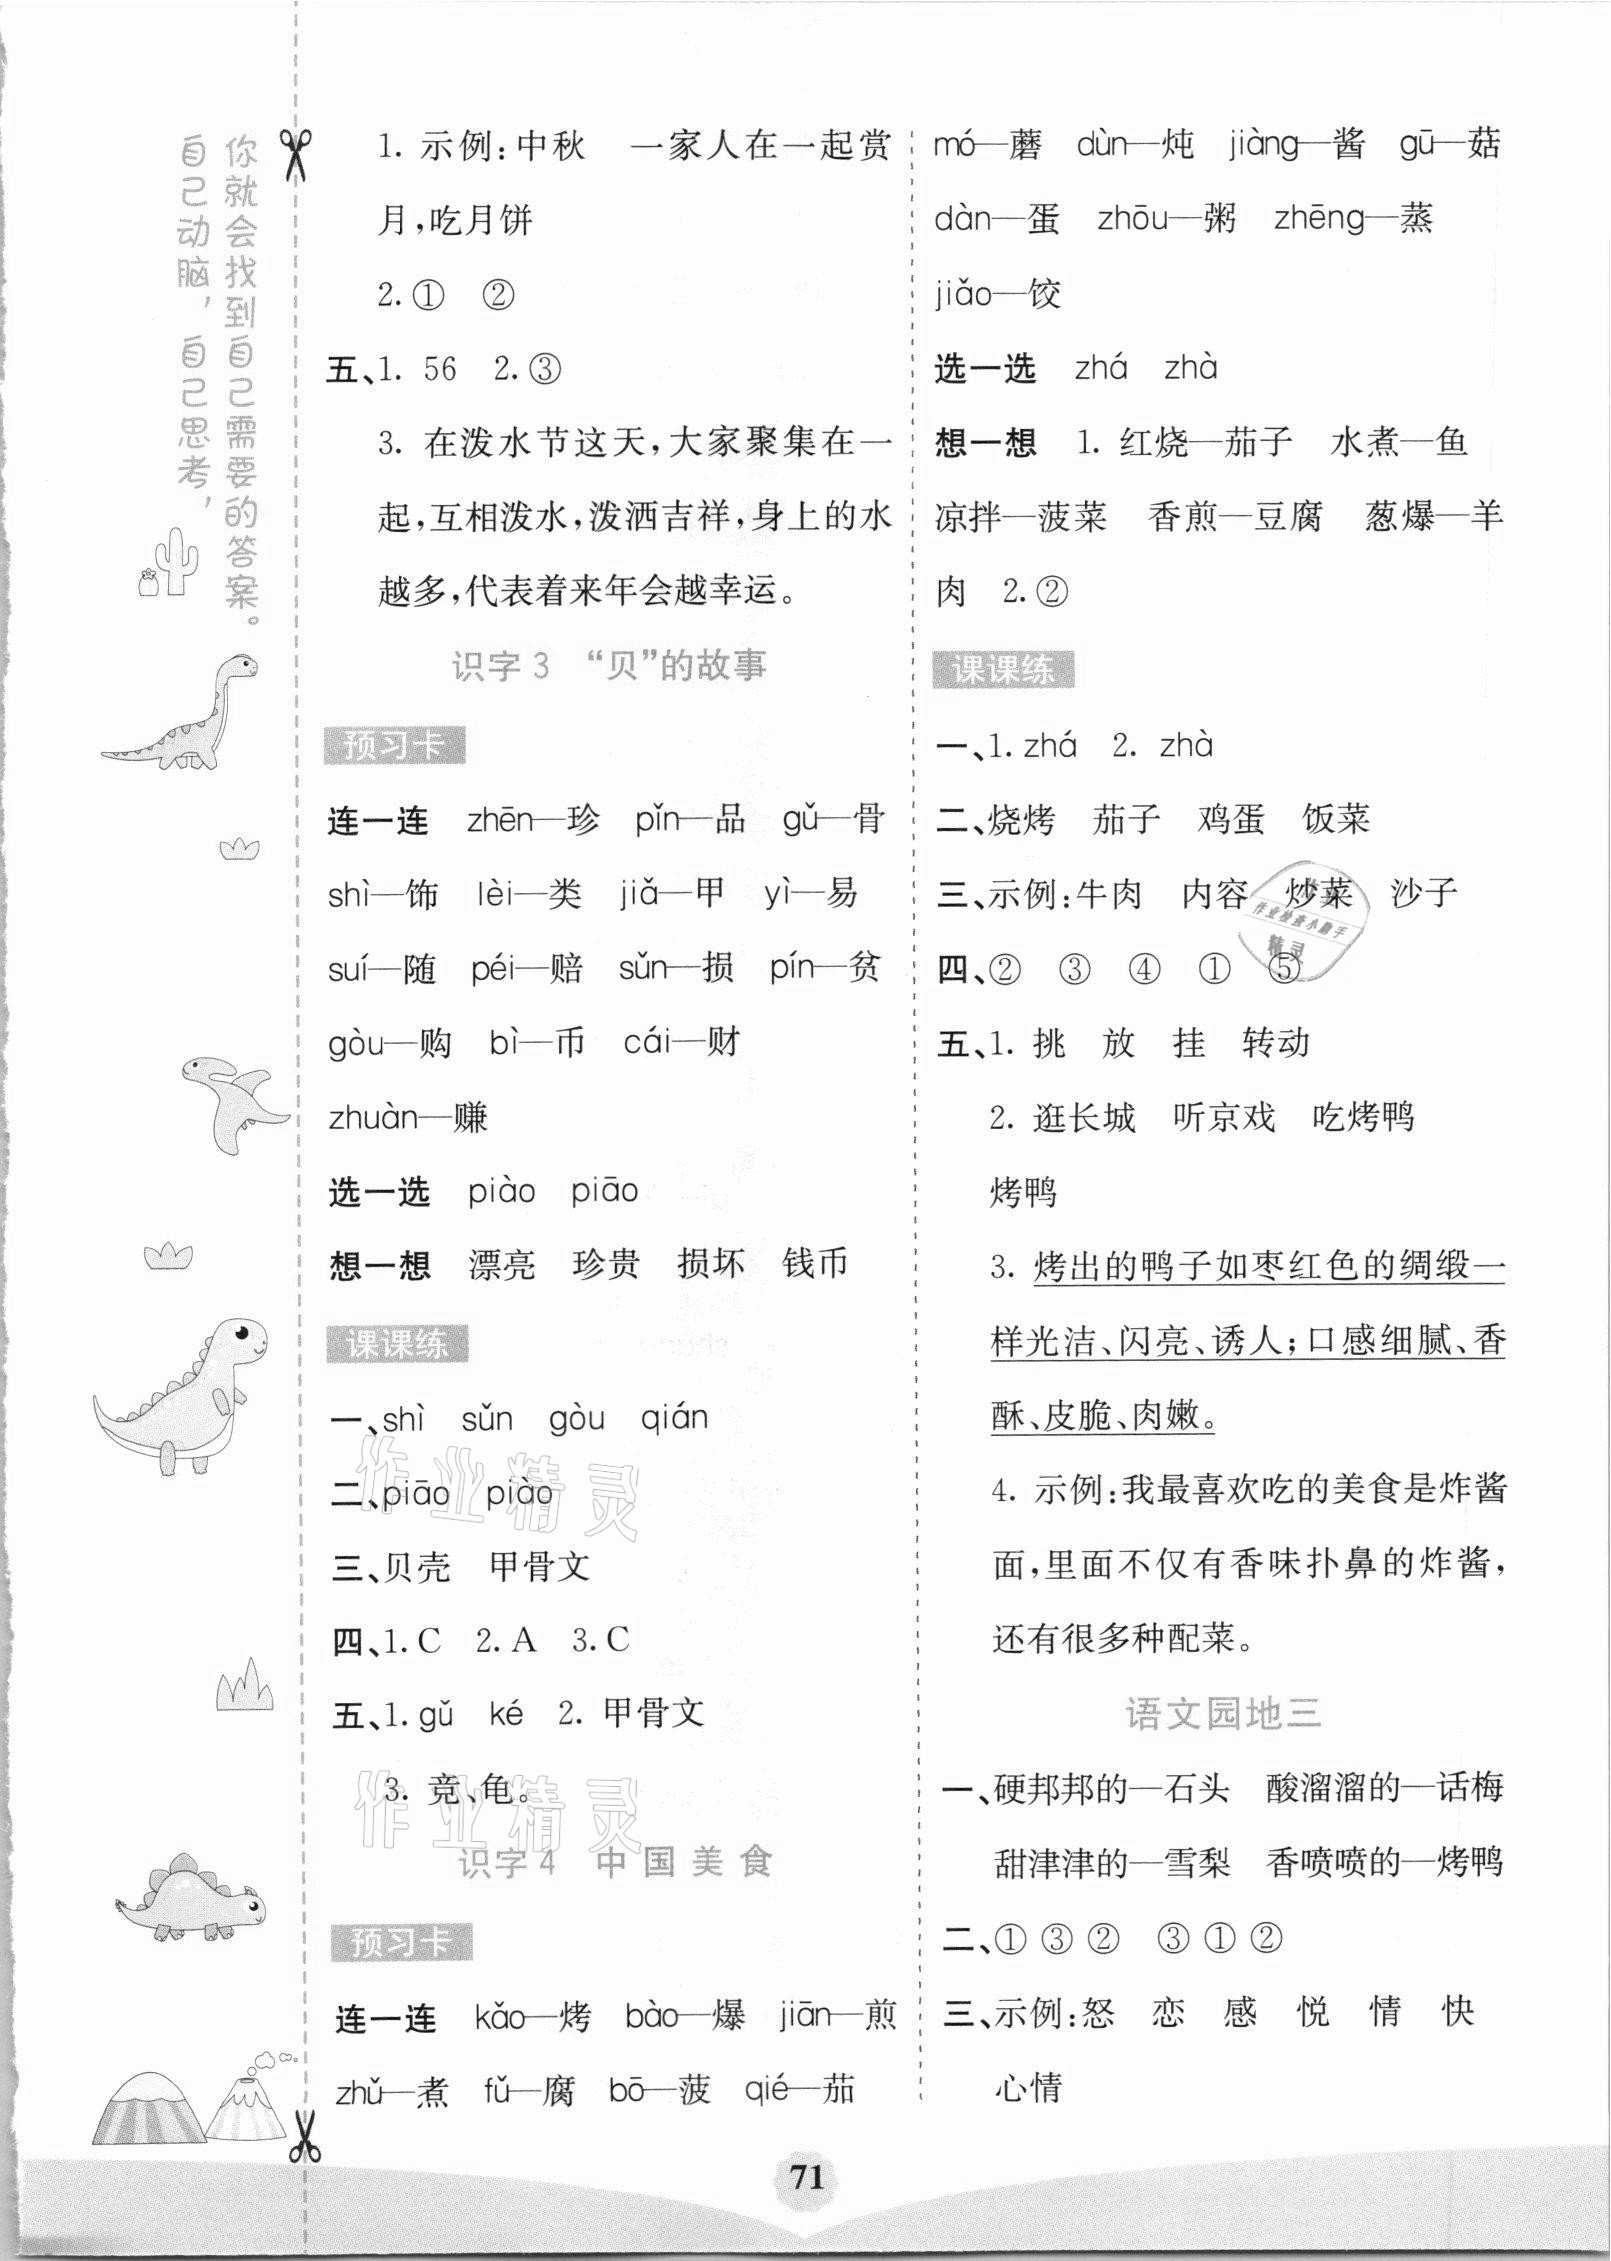 你就会找到自己需要的答案。
自己动脑，自己思考，
1. 示例：中秋 一家人在一起赏
月，吃月饼
2. ① ②
五、1. 56 2. ③
3. 在泼水节这天，大家聚集在一
起，互相泼水，泼洒吉祥，身上的水
越多，代表着来年会越幸运。
识字 3 “贝”的故事
预习卡
连一连 zhēn—珍 pǐn—品 gǔ—骨
shì—饰 lèi—类 jiǎ—甲 yì—易
suí—随 péi—赔 sǔn—损 pín—贫
gòu—购 bì—币 cái—财
zhuàn—赚
选一选 piào piāo
想一想 漂亮 珍贵 损坏 钱币
课课练
一、shì sǔn gòu qián
二、piāo piào
三、贝壳 甲骨文
四、1. C 2. A 3. C
五、1. gǔ ké 2. 甲骨文
3. 竞、龟。
识字 4 中国美食
预习卡
连一连 kǎo—烤 bào—爆 jiān—煎
zhǔ—煮 fǔ—腐 bō—菠 qié—茄
mó—蘑 dùn—炖 jiàng—酱 gū—菇
dàn—蛋 zhōu—粥 zhēng—蒸
jiǎo—饺
选一选 zhá zhà
想一想 1. 红烧—茄子 水煮—鱼
凉拌—菠菜 香煎—豆腐 葱爆—羊
肉 2. ②
课课练
一、1. zhá 2. zhà
二、烧烤 茄子 鸡蛋 饭菜
三、示例：牛肉 内容 炒菜 沙子
四、② ③ ④ ① ⑤
五、1. 挑 放 挂 转动
2. 逛长城 听京戏 吃烤鸭
烤鸭
3. 烤出的鸭子如枣红色的绸缎一
样光洁、闪亮、诱人；口感细腻、香
酥、皮脆、肉嫩。
4. 示例：我最喜欢吃的美食是炸酱
面，里面不仅有香味扑鼻的炸酱，
还有很多种配菜。
语文园地三
一、硬邦邦的—石头 酸溜溜的—话梅
甜津津的—雪梨 香喷喷的—烤鸭
二、①③② ③①②
三、示例：怒 恋 感 悦 情 快
心情
71
作业精灵
作业精灵
作业检查小助手
精灵